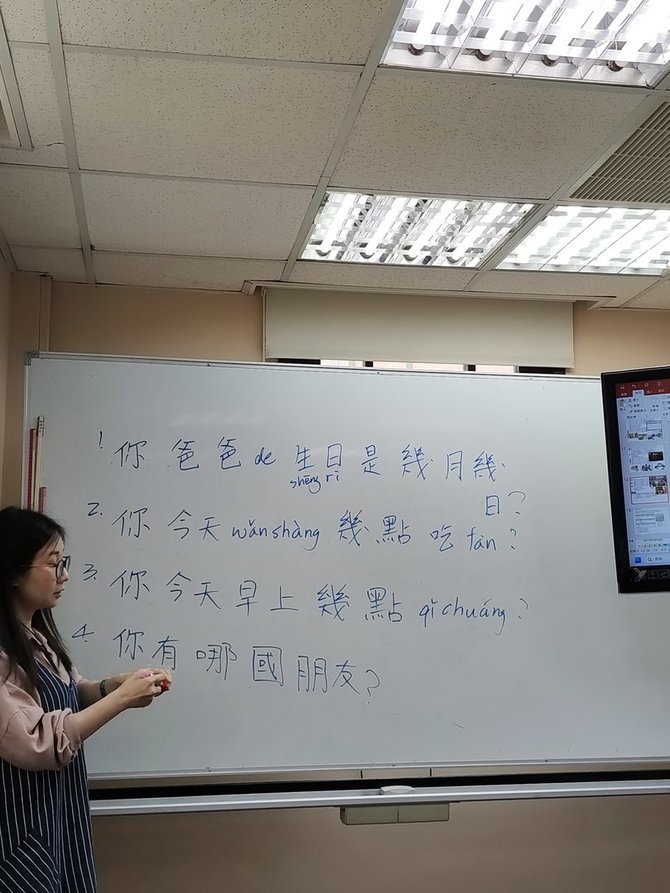 1. 你爸爸de生日是幾月幾
shēng rì
日?
2. 你今天wǎnshàng幾點吃fàn?
3. 你今天早上幾點qǐchuáng?
4. 你有哪國朋友?